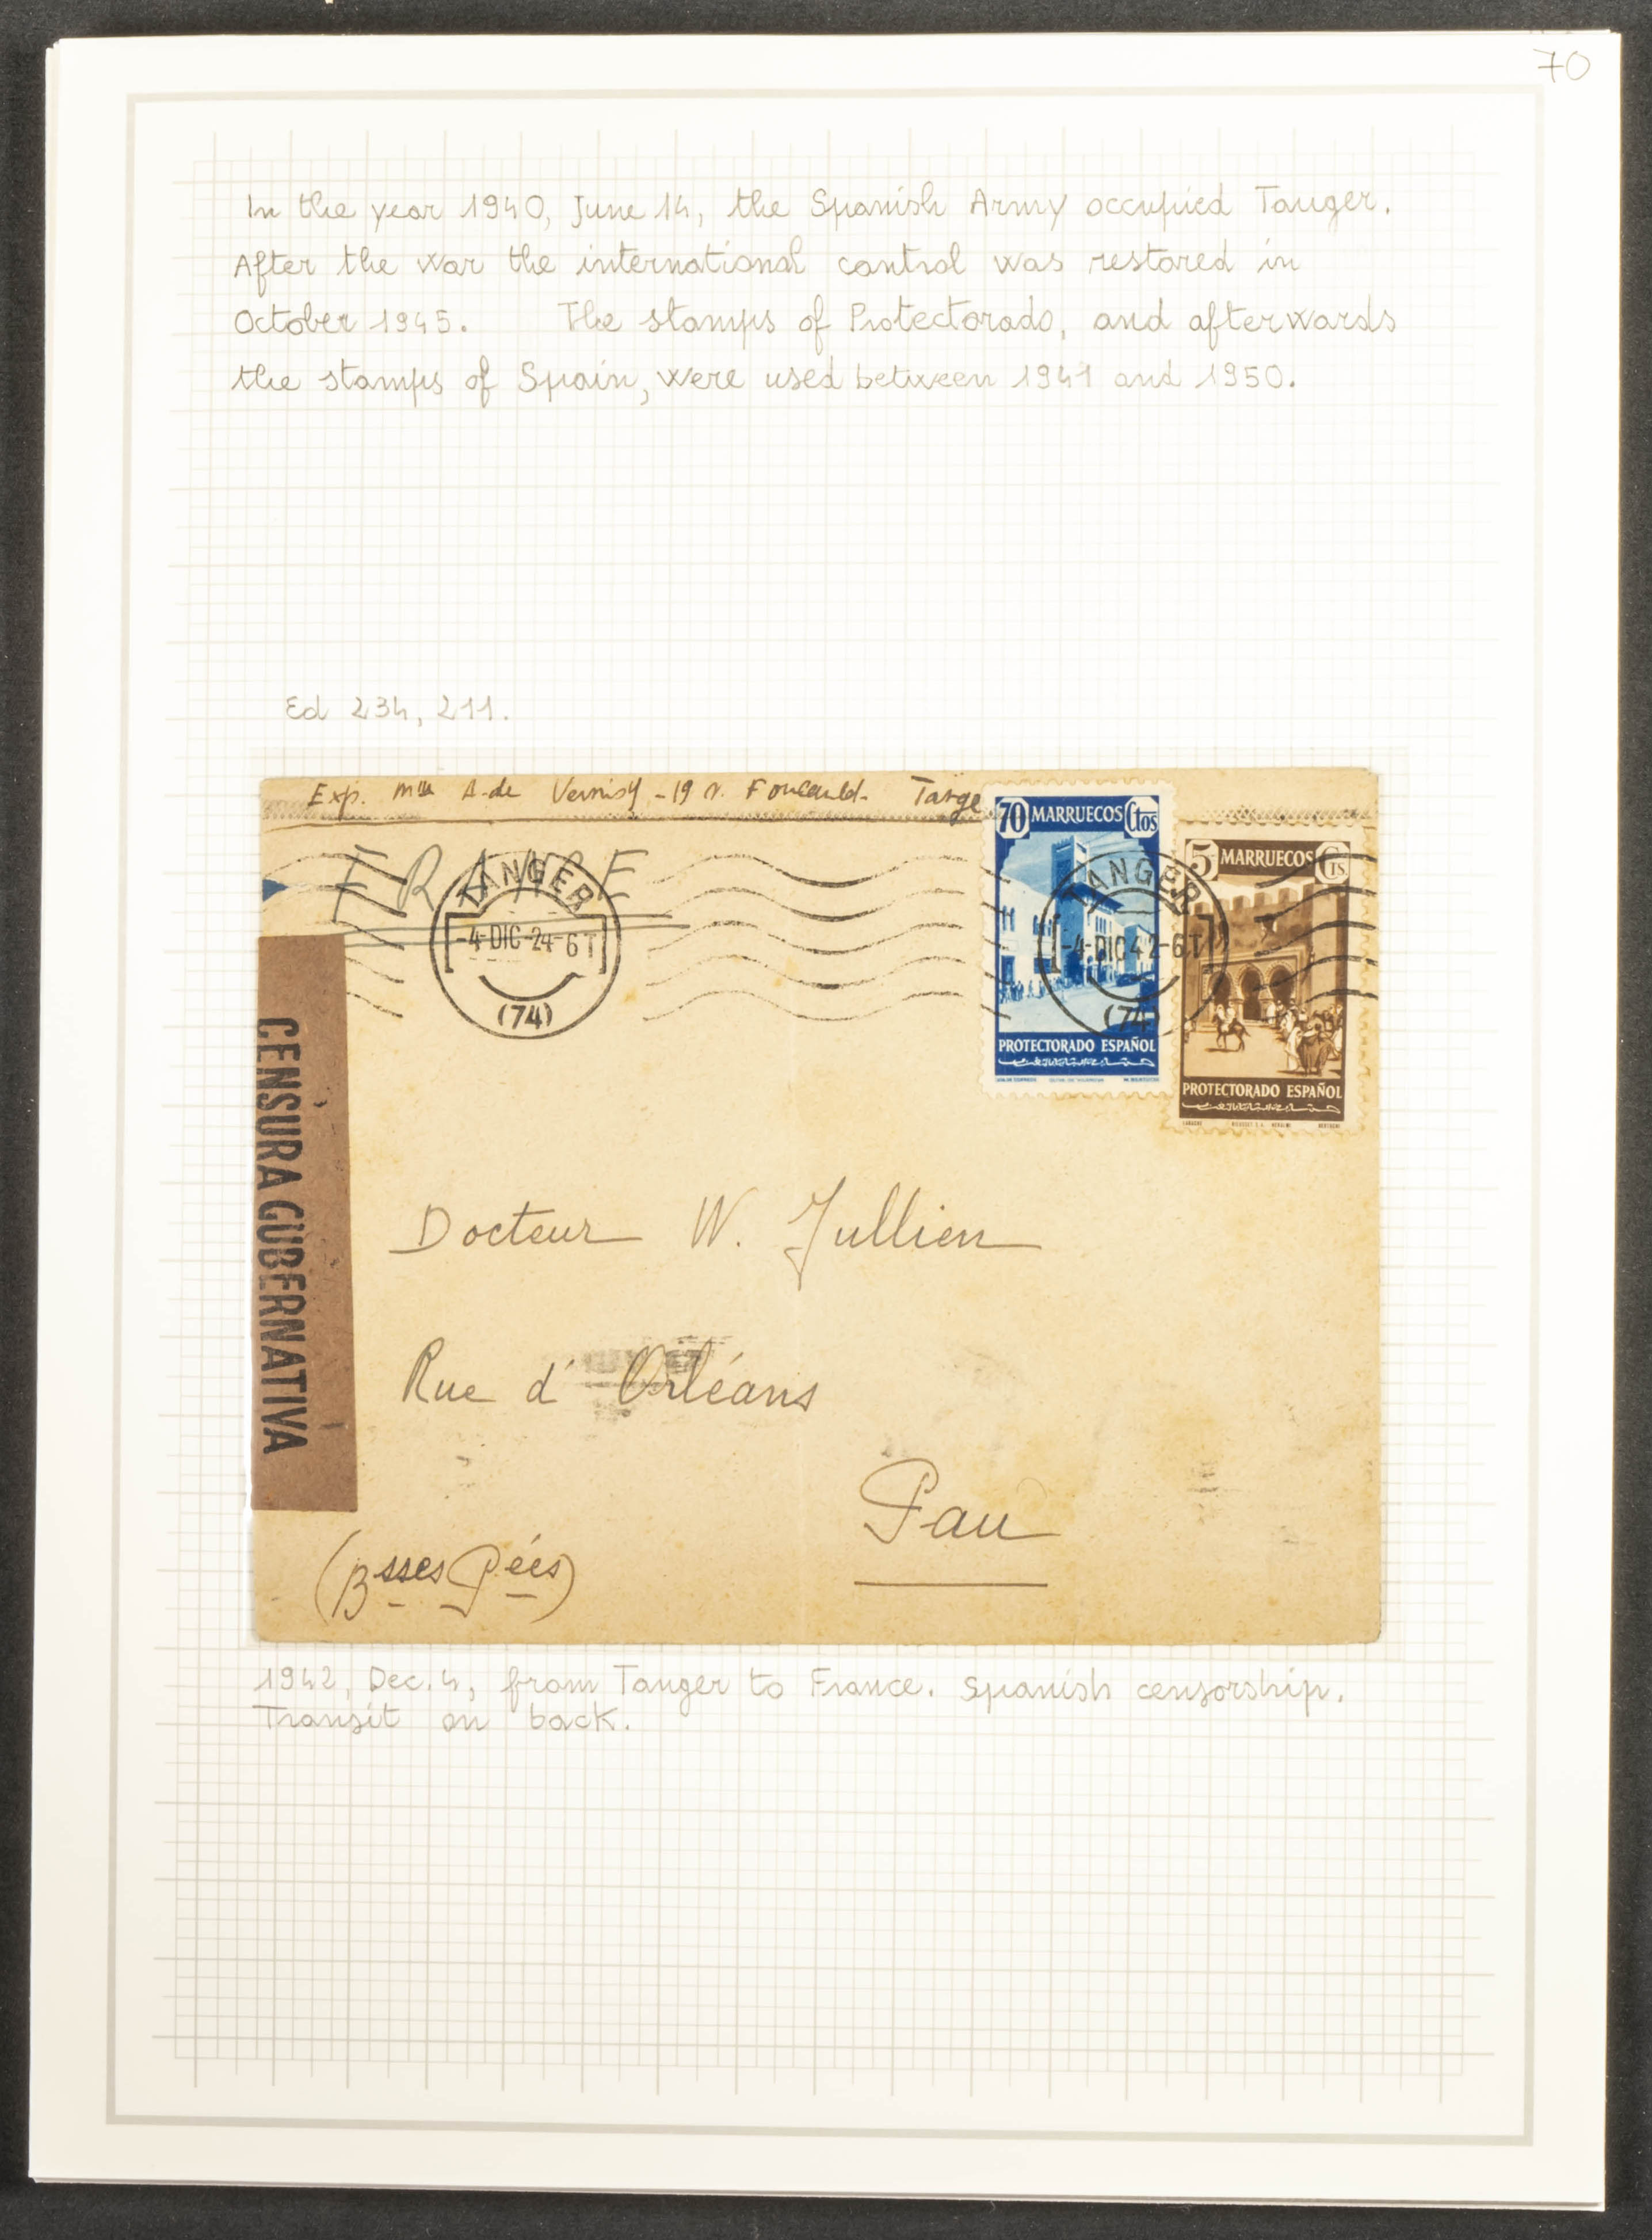 70
In the year 1940, June 14, the Spanish Army occupied Tanger.
After the war the international control was restored in
October 1945. The stamps of Protectorado, and afterwards
the stamps of Spain, were used between 1941 and 1950.
Ed 234, 211.
Exp. Mlle A. de Vernisy - 19 r. Foucauld - Tange
FRANCE
TANGER
-4-DIC-24-6T
(74)
70 MARRUECOS Ctos
PROTECTORADO ESPAÑOL
TANGER
-4-DIC42-6T
(74)
5 MARRUECOS Cts
PROTECTORADO ESPAÑOL
CENSURA GUBERNATIVA
Docteur W. Jullien
Rue d'Orléans
Pau
(Bsses Pées)
1942, Dec. 4, from Tanger to France. Spanish censorship.
Transit on back.